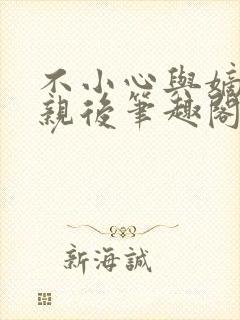 不小心與嫡
親後筆趣閣
新海誠